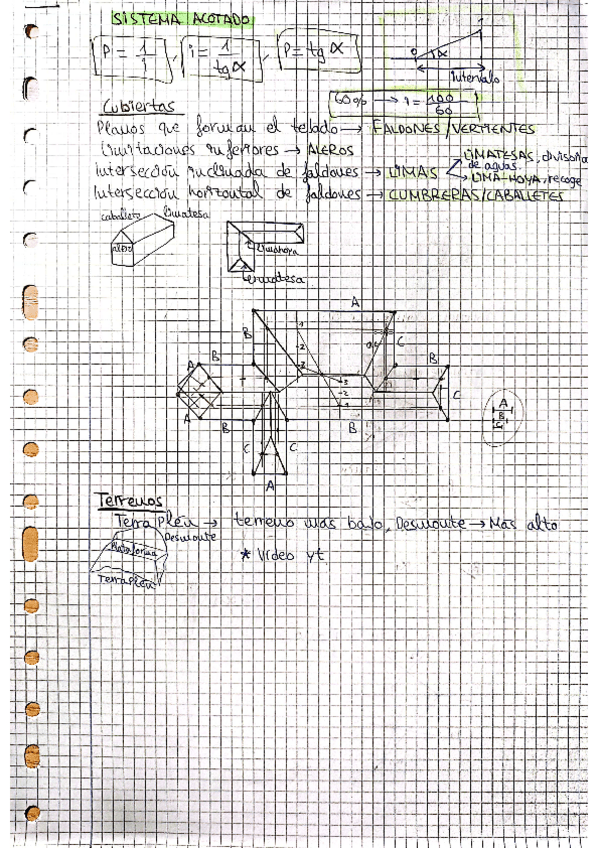 SISTEMA ACOTADO
P = 1/i , i = 1/tg α , P = tg α
α
intervalo
60% → i = 100/60
Cubiertas
Planos que forman el tejado → FALDONES/VERTIENTES
Limitaciones inferiores → ALEROS
Intersección inclinada de faldones → LIMAS
LIMATESAS, divisoria de aguas
LIMA-HOYA, recoge
Intersección horizontal de faldones → CUMBRERAS/CABALLETES
caballete
limatesa
alero
Limahoya
Limatesa
A
B
C
B
A
B
B
C
A
B
B
C
C
A
A
B
C
Terrenos
Terraplén → terreno más bajo, Desmonte → Más alto
Desmonte
Plataforma
Terraplén
* Vídeo yt